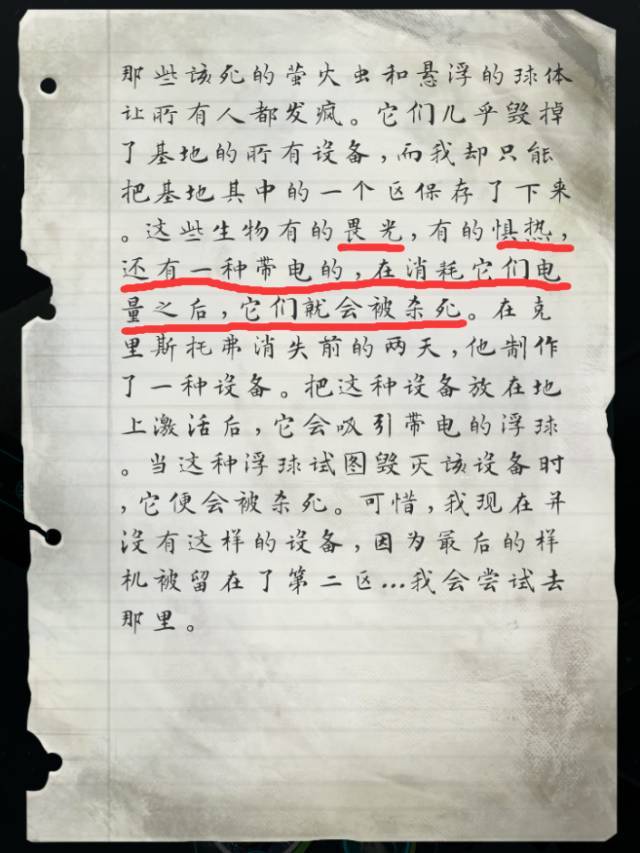 那些该死的萤火虫和悬浮的球体
让所有人都发疯。它们几乎毁掉
了基地的所有设备,而我却只能
把基地其中的一个区保存了下来
。这些生物有的畏光,有的惧热,
还有一种带电的,在消耗它们电
量之后,它们就会被杀死。在克
里斯托弗消失前的两天,他制作
了一种设备。把这种设备放在地
上激活后,它会吸引带电的浮球
。当这种浮球试图毁灭该设备时
,它便会被杀死。可惜,我现在并
没有这样的设备,因为最后的样
机被留在了第二区...我会尝试去
那里。